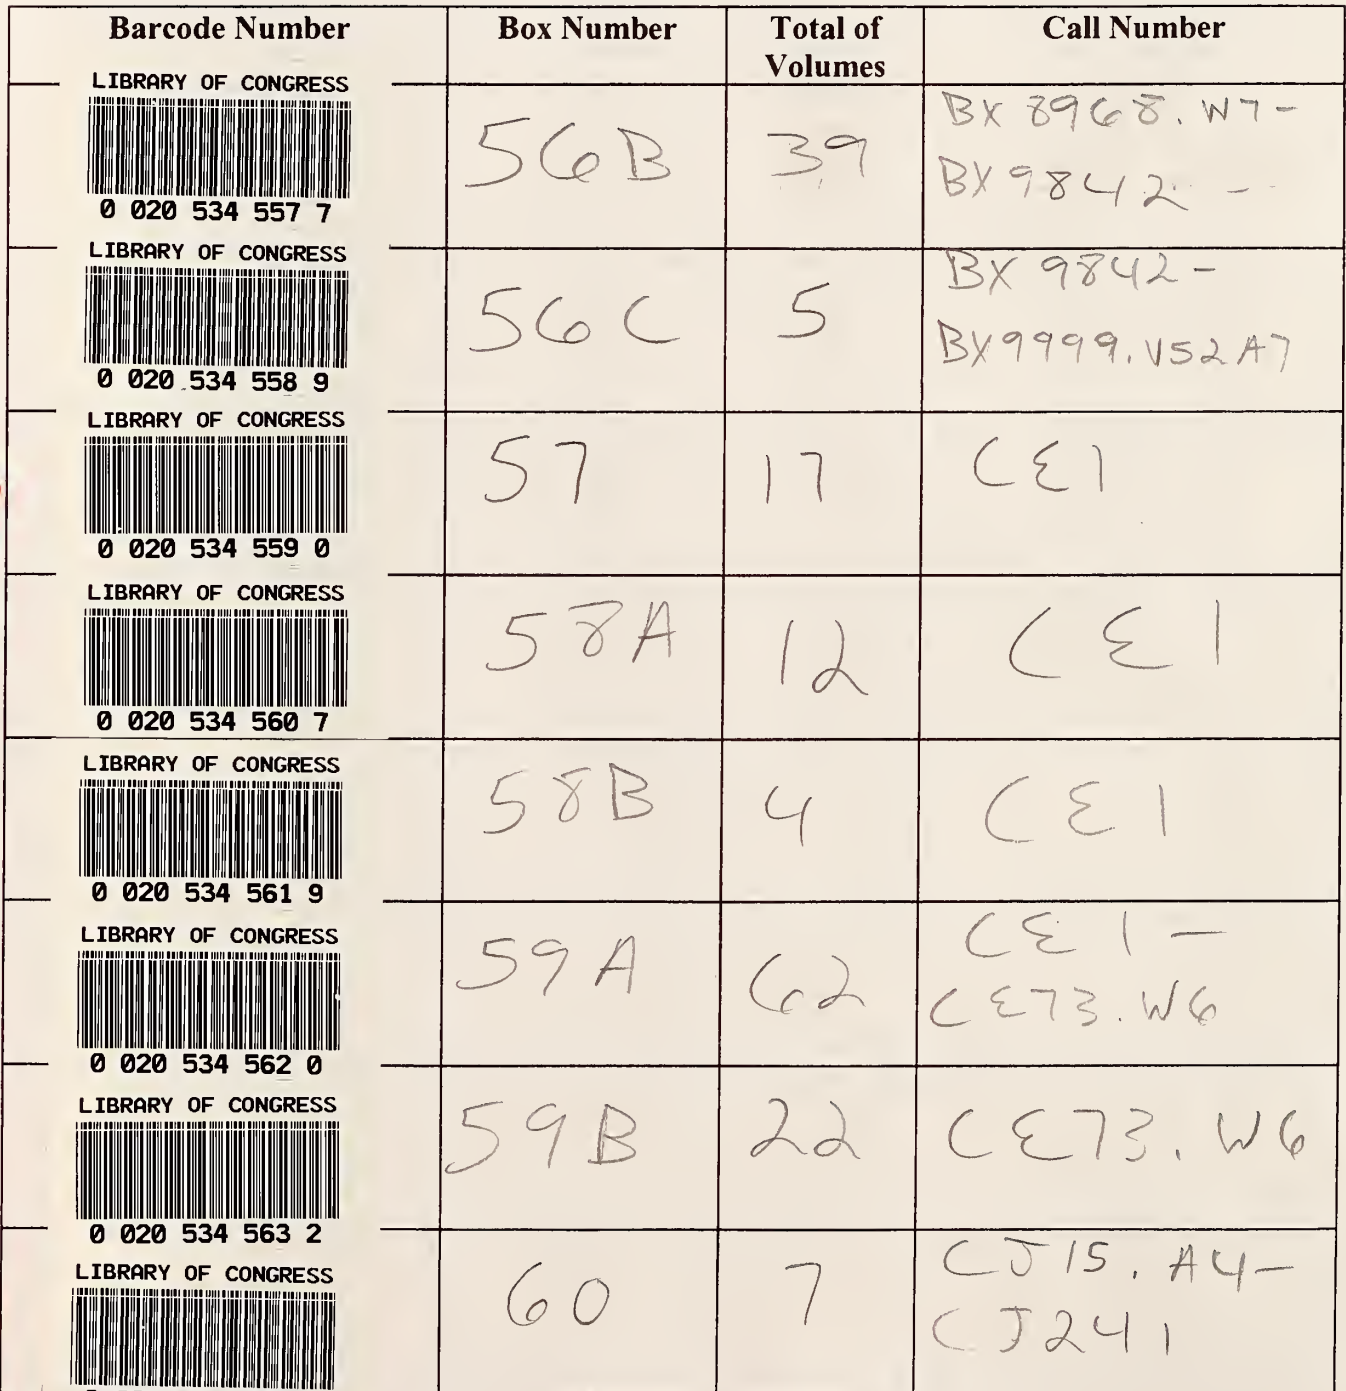 Barcode Number Box Number Total of Volumes Call Number
LIBRARY OF CONGRESS
0 020 534 557 7
56B
39
BX 8968. W7-
BX 9842 -
LIBRARY OF CONGRESS
0 020 534 558 9
56C
5
BX 9842-
BX9999. V52 A7
LIBRARY OF CONGRESS
0 020 534 559 0
57
17
CE1
LIBRARY OF CONGRESS
0 020 534 560 7
58A
12
CE1
LIBRARY OF CONGRESS
0 020 534 561 9
58B
4
CE1
LIBRARY OF CONGRESS
0 020 534 562 0
59A
62
CE1 -
CE73. W6
LIBRARY OF CONGRESS
0 020 534 563 2
59B
22
CE73. W6
LIBRARY OF CONGRESS
60
7
CJ15. A4-
CJ241